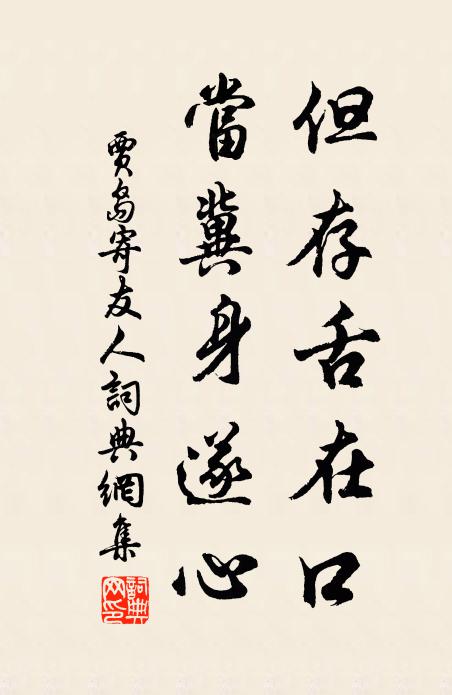 但存舌在口
當冀身遂心
賈島寄友人詞典網集
詞典
网印